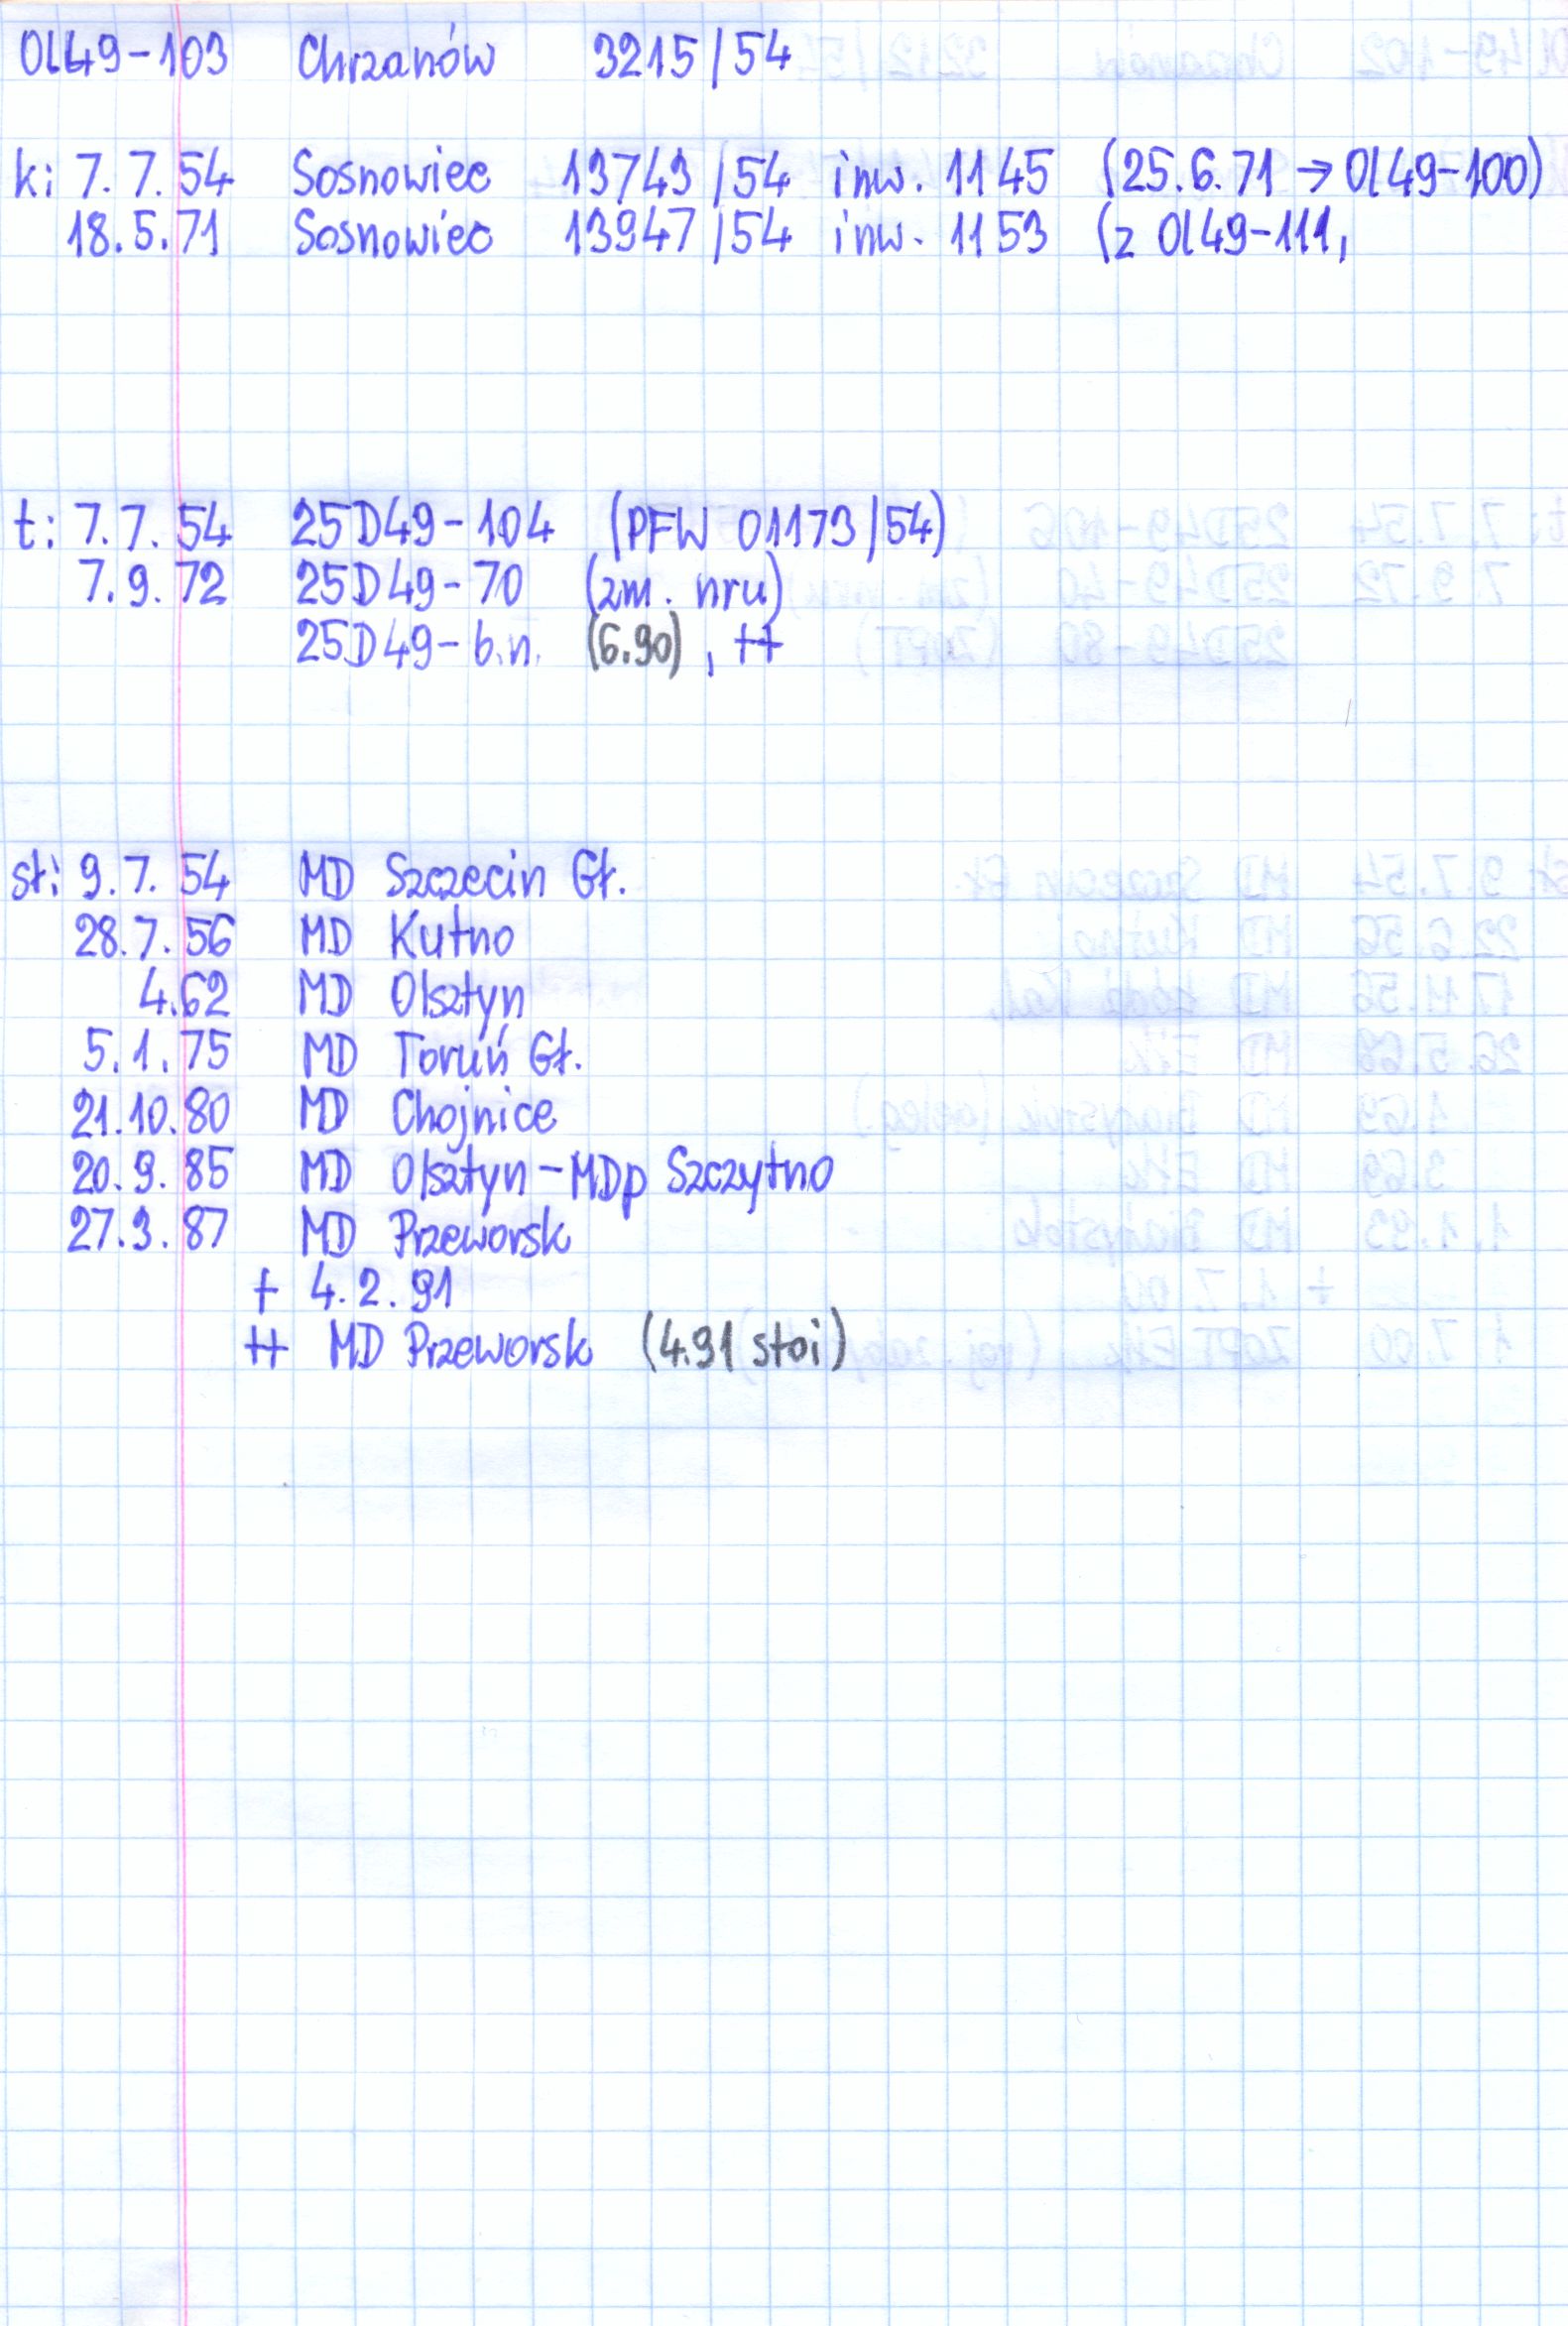 Ol49-103 Chrzanów 3215/54
k: 7.7.54 Sosnowiec 13743/54 inw. 1145 (25.6.71 → Ol49-100)
18.5.71 Sosnowiec 13947/54 inw. 1153 (z Ol49-111,
t: 7.7.54 25D49-104 (PFW 01173/54)
7.9.72 25D49-70 (zm. nru)
25D49-b.n. (6.90), ++
st: 9.7.54 MD Szczecin Gł.
28.7.56 MD Kutno
4.62 MD Olsztyn
5.1.75 MD Toruń Gł.
21.10.80 MD Chojnice
20.9.85 MD Olsztyn-MDp Szczytno
27.3.87 MD Przeworsk
+ 4.2.91
++ MD Przeworsk (4.91 stoi)